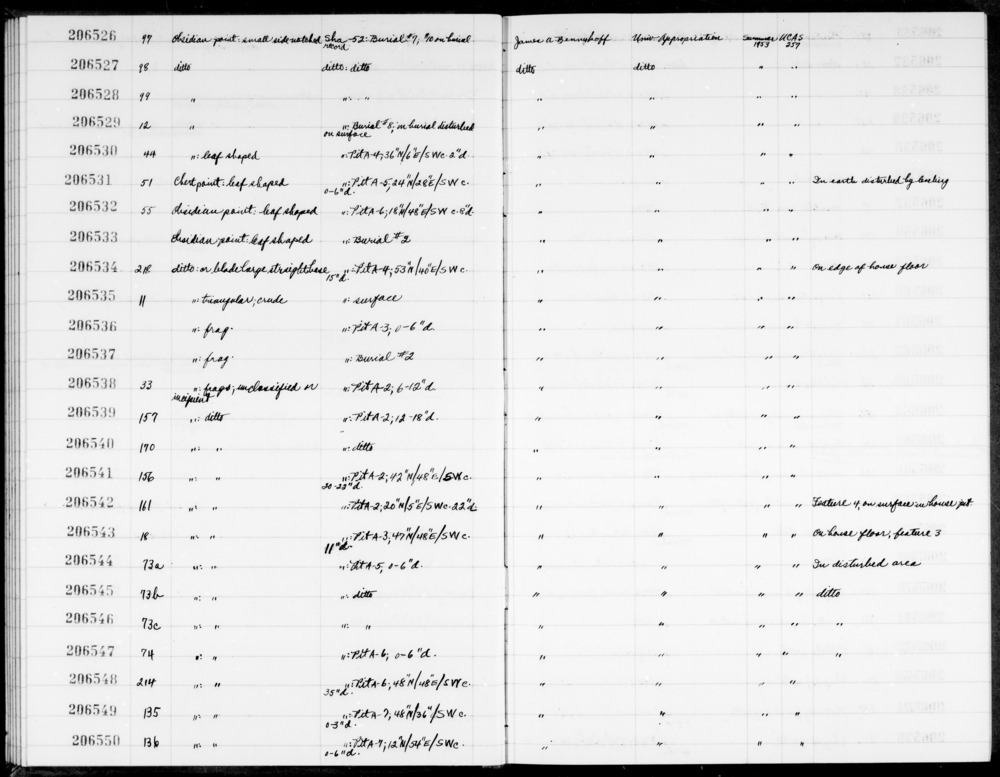 206526 97 Obsidian point: small side notched Sha-52: Burial #7, 70 on burial record James A Bennyhoff Univ. Appropriation Summer 1953 UCAS 257
206527 98 ditto ditto: ditto ditto ditto " "
206528 99 " ": " " " " "
206529 12 " ": Burial #8; in burial disturbed on surface " " " "
206530 44 ": leaf shaped ": Pit A-4; 36"N/6"E/SWc. 2"d. " " " "
206531 51 Chert point: leaf shaped ": Pit A-5, 24"N/28"E/SWc. 0-6"d. " " " " In earth disturbed by
206532 55 Obsidian point: leaf shaped ": Pit A-6; 18"N/48"E/SW c. 8"d. " " " "
206533 Obsidian point: leaf shaped ": Burial #2 " " " "
206534 218 ditto: or blade large straight base ": Pit A-4; 53"N/40"E/SWc. 15"d. " " " " On edge of house floor
206535 11 ": triangular, crude ": surface " " " "
206536 ": frag. ": Pit A-3; 0-6"d. " " " "
206537 ": frag. ": Burial #2 " " " "
206538 33 ": frags; unclassified or incipient ": Pit A-2; 6-12"d. " " " "
206539 157 ": ditto ": Pit A-2; 12-18"d. " " " "
206540 170 ": " ": ditto " " " "
206541 156 ": " ": Pit A-2; 42"N/48"E/SWc. 20-22"d. " " " "
206542 161 ": " ": Pit A-2; 20"N/5"E/SWc. 22"d. " " " " Feature 4, on surface in house pit
206543 18 ": " ": Pit A-3, 47"N/48"E/SWc. 11"d. " " " " On house floor, feature 3
206544 73a ": " ": Pit A-5, 0-6"d. " " " " In disturbed area
206545 73b ": " ": ditto " " " " ditto
206546 73c ": " ": " " " " " "
206547 74 ": " ": Pit A-6; 0-6"d. " " " " "
206548 214 ": " ": Pit A-6; 48"N/48"E/SWc. 35"d. " " " "
206549 135 ": " ": Pit A-7; 48"N/36"/SWc. 0-3"d. " " " "
206550 136 ": " ": Pit A-7; 12"N/54"E/SWc. 0-6"d. " " " "